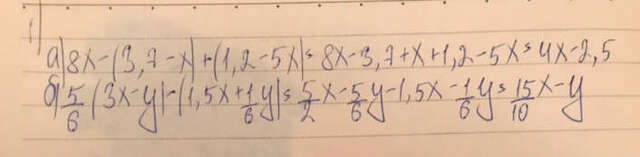 1)
а) 8x-(3,7-x)+(1,2-5x)=8x-3,7+x+1,2-5x=4x-2,5
б) 5/6(3x-y)-(1,5x+1/6y)=5/2x-5/6y-1,5x-1/6y=15/10x-y